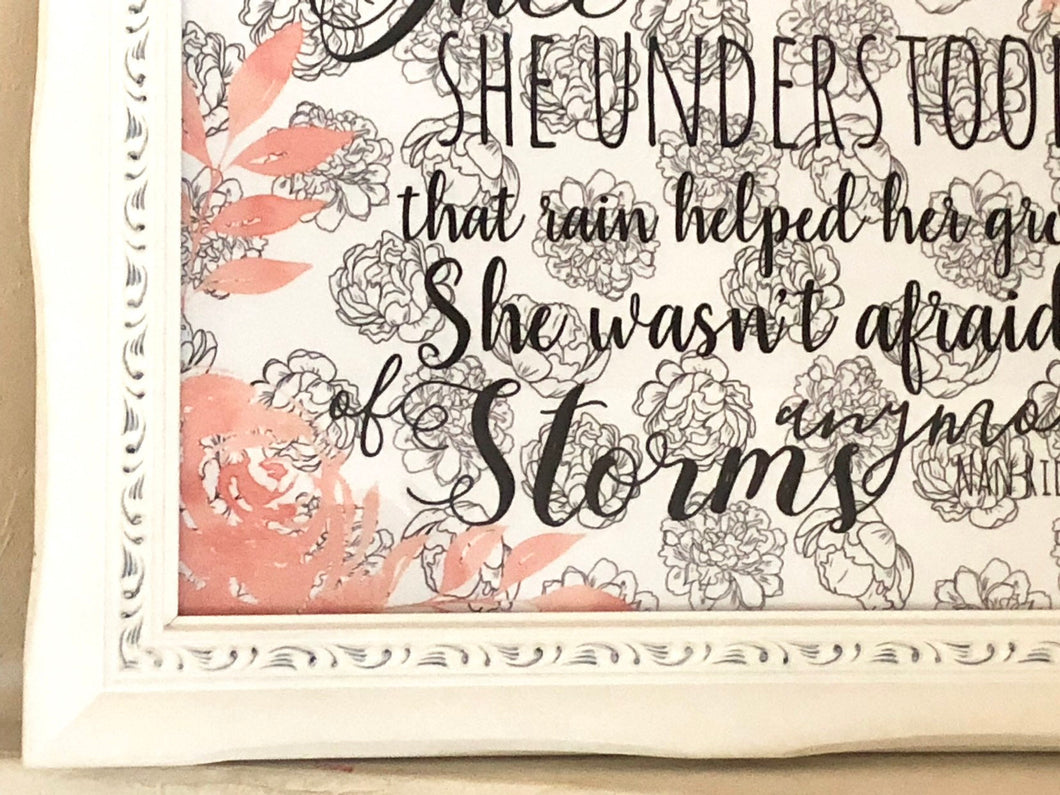 SHE UNDERSTOO
that rain helped her gro
She wasn't afraid
of Storms anymo
NAN KI